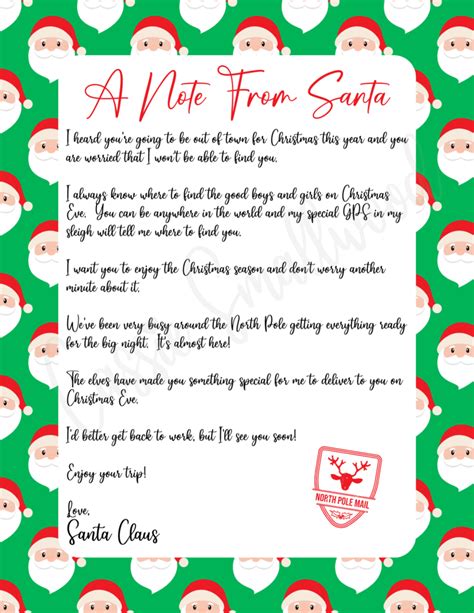 A Note From Santa
I heard you're going to be out of town for Christmas this year and you
are worried that I won't be able to find you.
I always know where to find the good boys and girls on Christmas
Eve. You can be anywhere in the world and my special GPS in my
sleigh will tell me where to find you.
I want you to enjoy the Christmas season and don't worry another
minute about it.
We've been very busy around the North Pole getting everything ready
for the big night. It's almost here!
The elves have made you something special for me to deliver to you on
Christmas Eve.
I'd better get back to work, but I'll see you soon!
Enjoy your trip!
NORTH POLE MAIL
Love,
Santa Claus